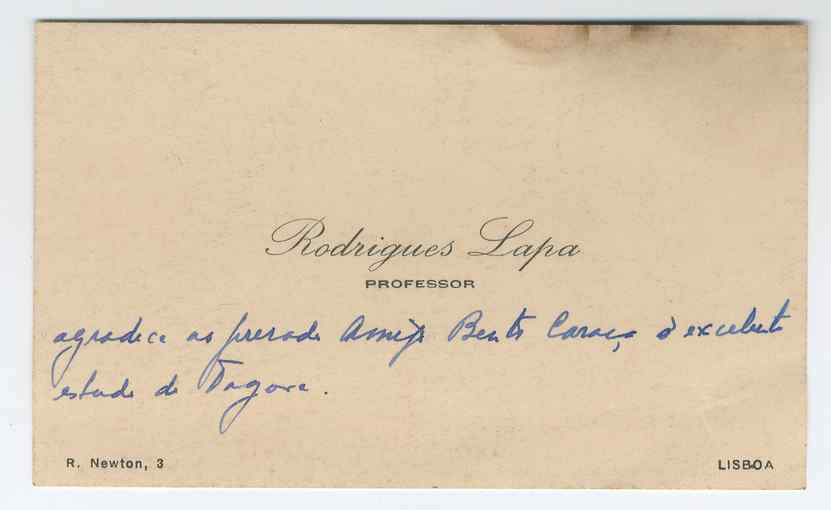 Rodrigues Lapa
PROFESSOR
agradece ao prezado Amigo Bento Caraça o excelente
estudo de Tagore.
R. Newton, 3
LISBOA